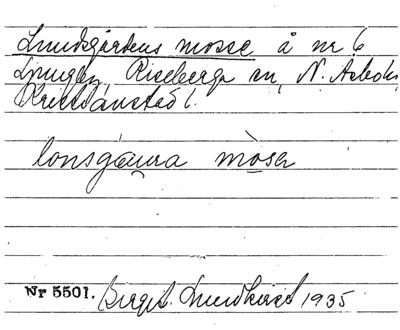 Lundsgårdens mosse å nr 6
Ljungby, Riseberga sn, N. Åsbo hd,
Kristianstads l.
lonsgåura mòsen
Nr 5501. Birgit Lundkvist 1935